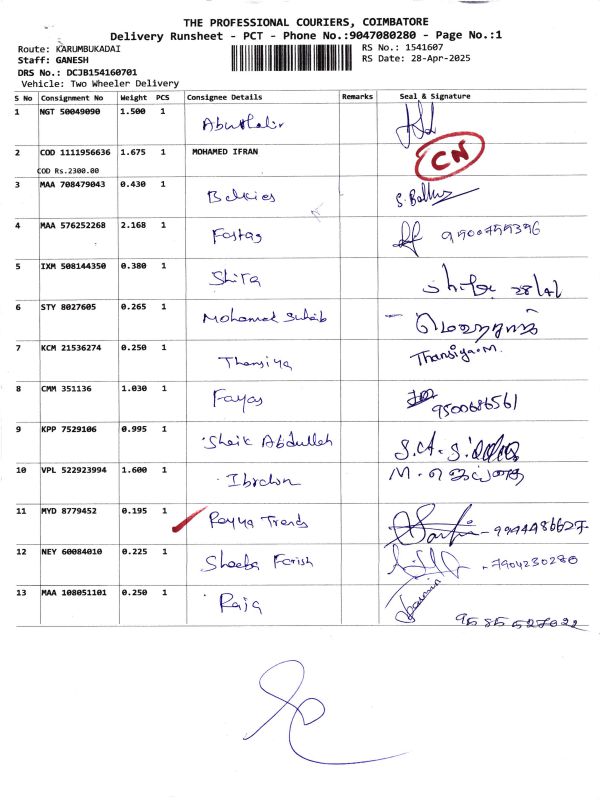 THE PROFESSIONAL COURIERS, COIMBATORE
Delivery Runsheet - PCT - Phone No.:9047080280 - Page No.:1
Route: KARUMBUKADAI RS No.: 1541607
Staff: GANESH RS Date: 28-Apr-2025
DRS No.: DCJB154160701
Vehicle: Two Wheeler Delivery
S No Consignment No Weight PCS Consignee Details Remarks Seal & Signature
1 NGT 50049090 1.500 1 Abuthalir
2 COD 1111956636 1.675 1 MOHAMED IFRAN CN
COD Rs.2300.00
3 MAA 708479043 0.430 1 Belkies
4 MAA 576252268 2.168 1 Fastag
5 IXM 508144350 0.380 1 Shifa 28/4/
6 STY 8027605 0.265 1 Mohamed Suhaib
7 KCM 21536274 0.250 1 Thansiya Thansiya.M.
8 CMM 351136 1.030 1 Fayas 9500686561
9 KPP 7529106 0.995 1 Sheik Abdullah
10 VPL 522923994 1.600 1
11 MYD 8779452 0.195 1 Trends
12 NEY 60084010 0.225 1 Sheeba Farish 7904230280
13 MAA 108051101 0.250 1 Raja 9585527022